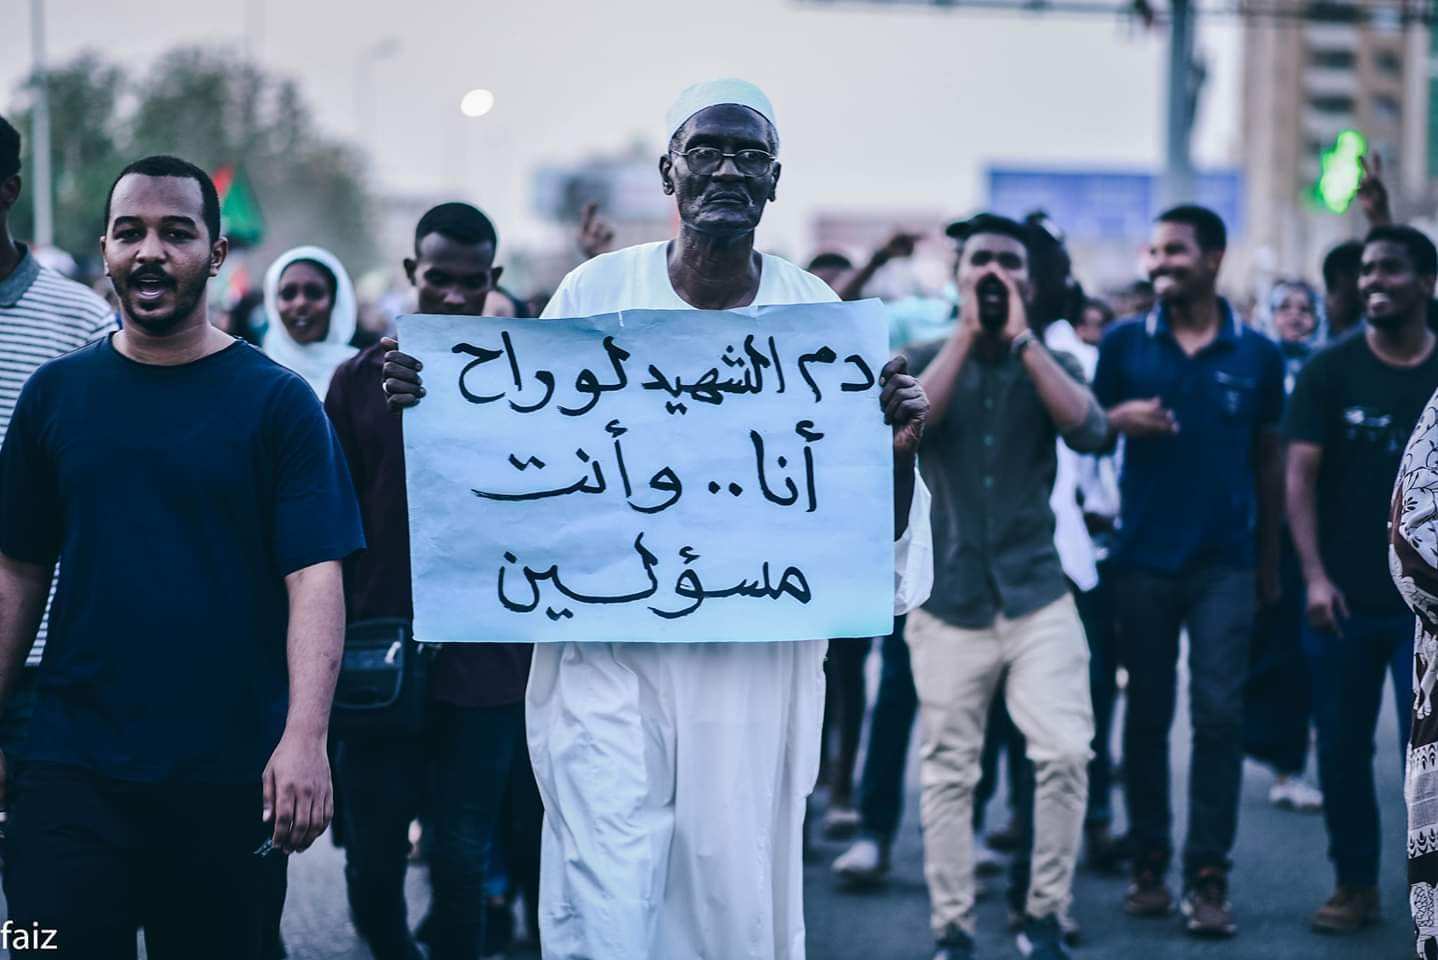 دم الشهيد لو راح
أنا.. وأنت
مسؤلين
faiz